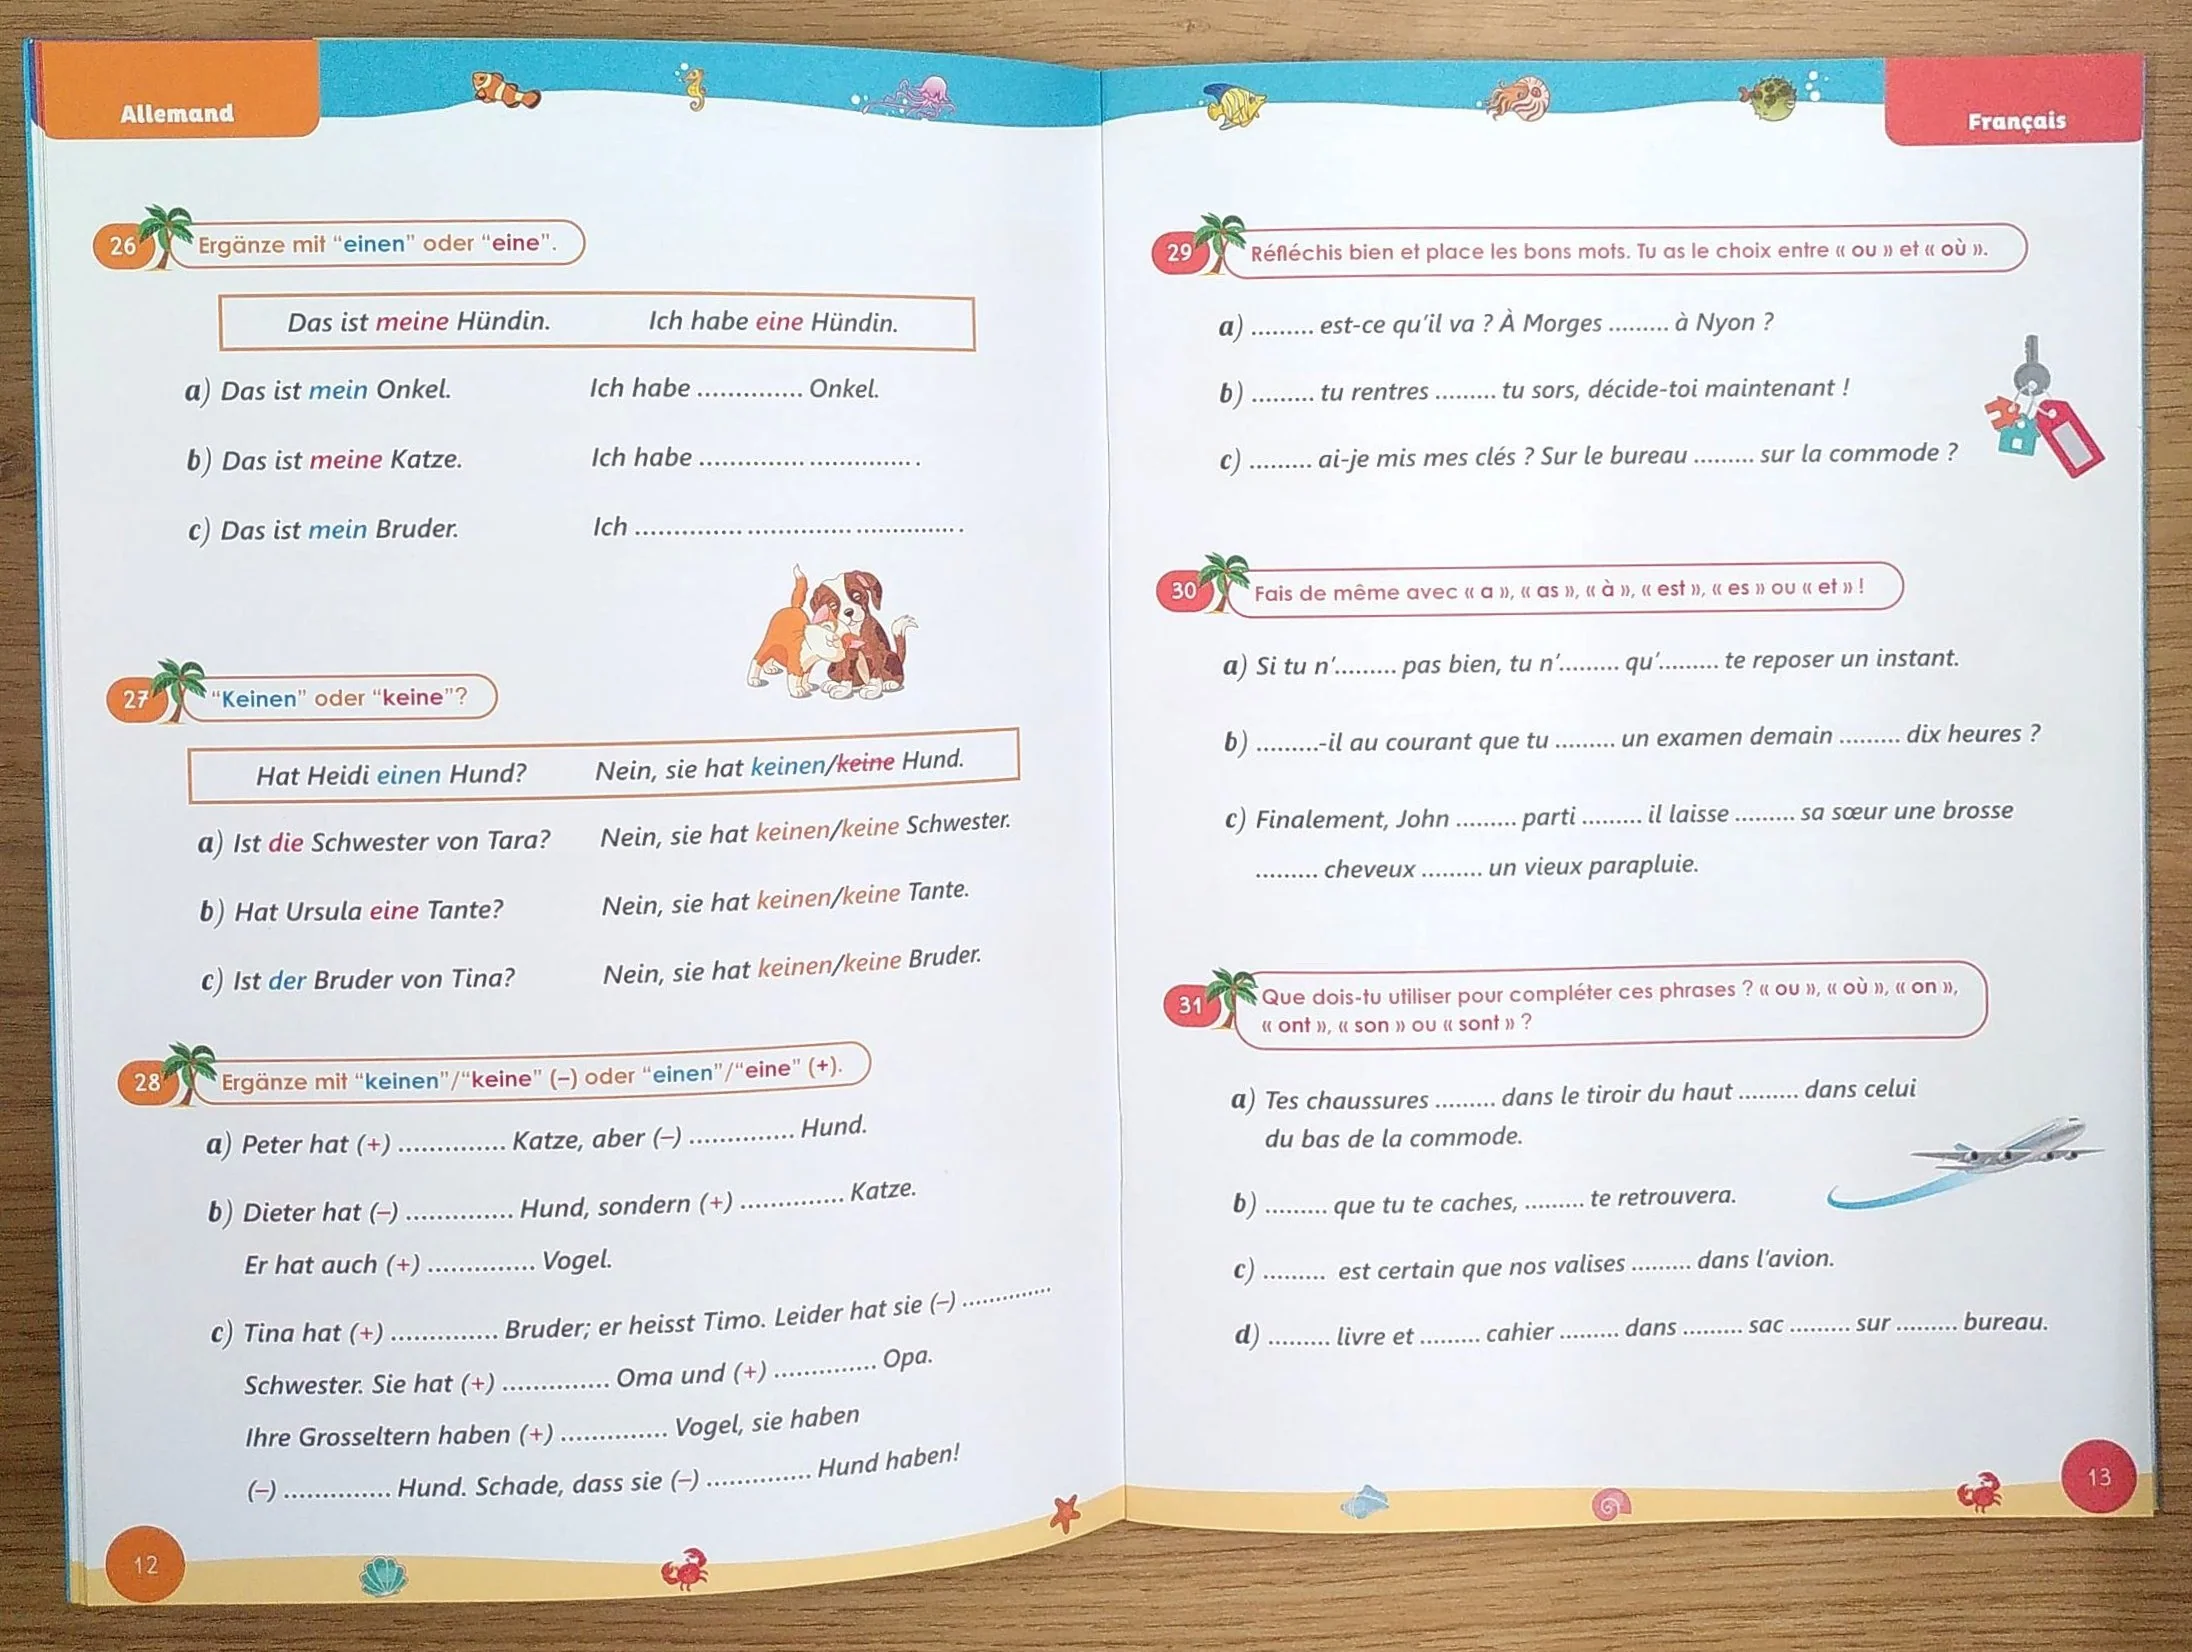 Allemand
26 Ergänze mit “einen” oder “eine”.
Das ist meine Hündin. Ich habe eine Hündin.
a) Das ist mein Onkel. Ich habe .............. Onkel.
b) Das ist meine Katze. Ich habe .............. ..............
c) Das ist mein Bruder. Ich .............. .............. ..............
27 “Keinen” oder “keine”?
Hat Heidi einen Hund? Nein, sie hat keinen/keine Hund.
a) Ist die Schwester von Tara? Nein, sie hat keinen/keine Schwester.
b) Hat Ursula eine Tante? Nein, sie hat keinen/keine Tante.
c) Ist der Bruder von Tina? Nein, sie hat keinen/keine Bruder.
28 Ergänze mit “keinen”/“keine” (–) oder “einen”/“eine” (+).
a) Peter hat (+) .............. Katze, aber (–) .............. Hund.
b) Dieter hat (–) .............. Hund, sondern (+) .............. Katze.
Er hat auch (+) .............. Vogel.
c) Tina hat (+) .............. Bruder; er heisst Timo. Leider hat sie (–) ..............
Schwester. Sie hat (+) .............. Oma und (+) .............. Opa.
Ihre Grosseltern haben (+) .............. Vogel, sie haben
(–) .............. Hund. Schade, dass sie (–) .............. Hund haben!
12
Français
29 Réfléchis bien et place les bons mots. Tu as le choix entre « ou » et « où ».
a) ......... est-ce qu’il va ? À Morges ......... à Nyon ?
b) ......... tu rentres ......... tu sors, décide-toi maintenant !
c) ......... ai-je mis mes clés ? Sur le bureau ......... sur la commode ?
30 Fais de même avec « a », « as », « à », « est », « es » ou « et » !
a) Si tu n’......... pas bien, tu n’......... qu’......... te reposer un instant.
b) .........-il au courant que tu ......... un examen demain ......... dix heures ?
c) Finalement, John ......... parti ......... il laisse ......... sa sœur une brosse
......... cheveux ......... un vieux parapluie.
31 Que dois-tu utiliser pour compléter ces phrases ? « ou », « où », « on »,
« ont », « son » ou « sont » ?
a) Tes chaussures ......... dans le tiroir du haut ......... dans celui
du bas de la commode.
b) ......... que tu te caches, ......... te retrouvera.
c) ......... est certain que nos valises ......... dans l’avion.
d) ......... livre et ......... cahier ......... dans ......... sac ......... sur ......... bureau.
13